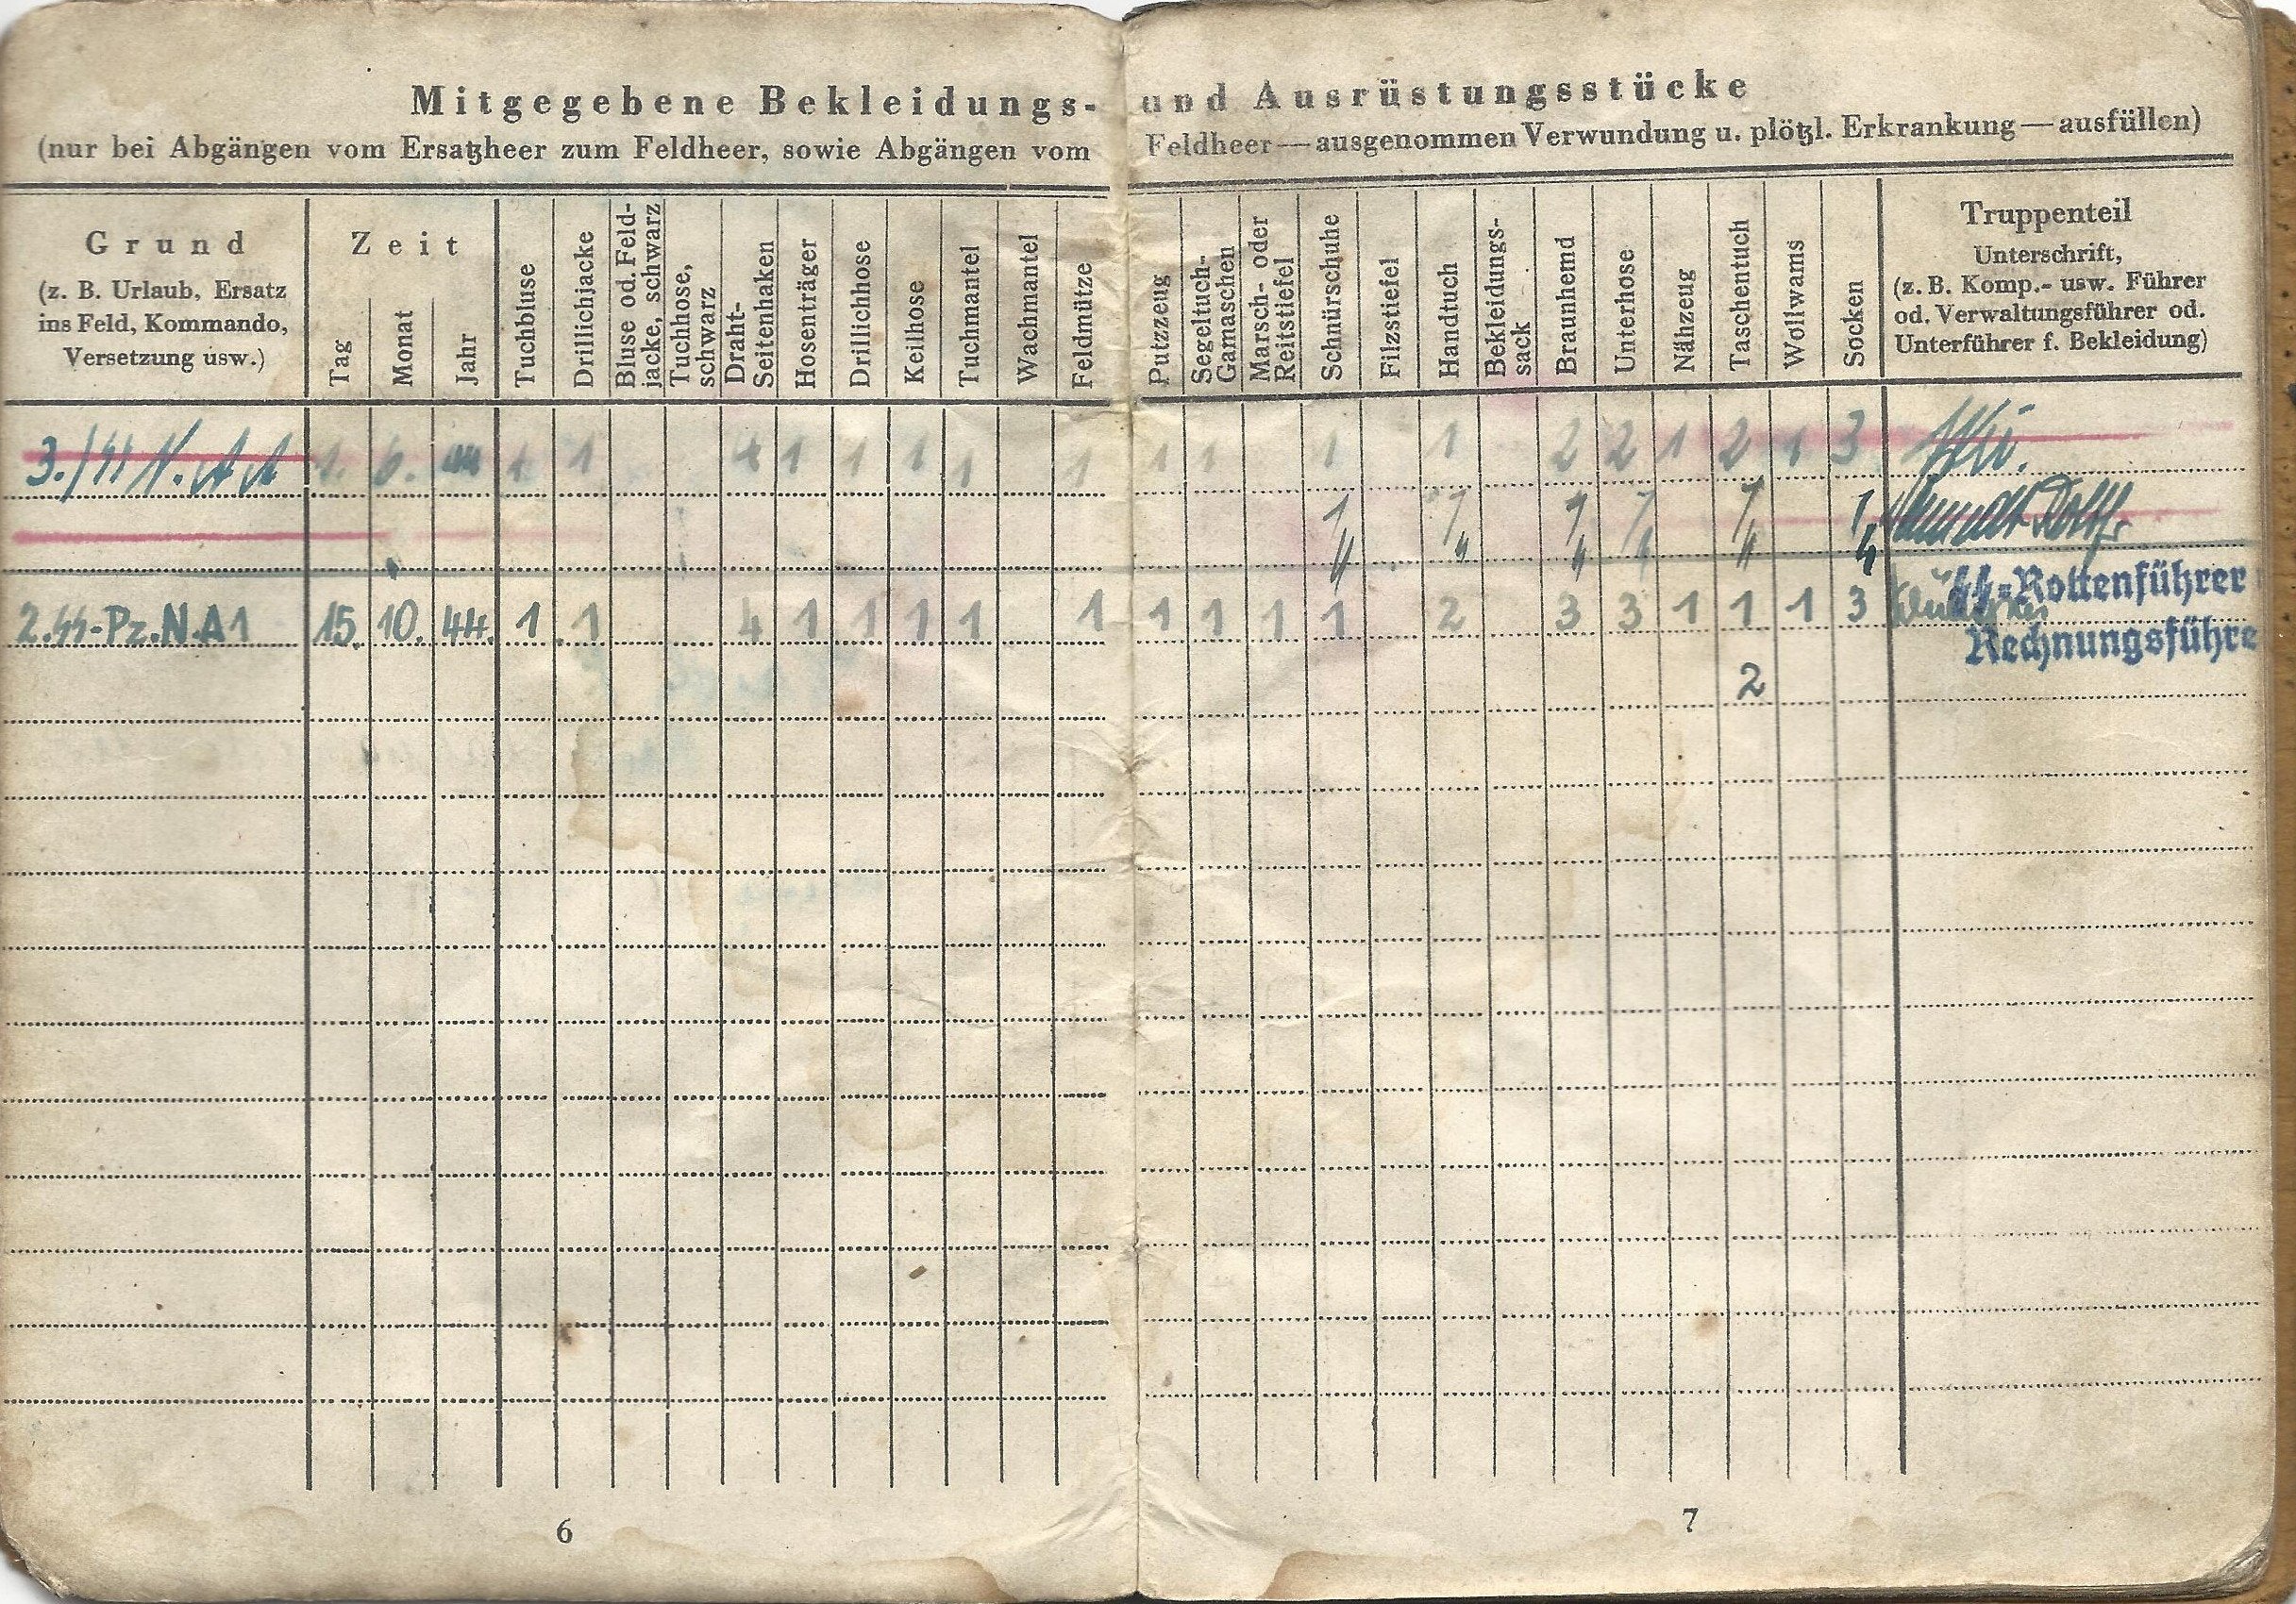 Mitgegebene Bekleidungs- und Ausrüstungsstücke
(nur bei Abgängen vom Ersatzheer zum Feldheer, sowie Abgängen vom Feldheer — ausgenommen Verwundung u. plötzl. Erkrankung — ausfüllen)
Grund
(z. B. Urlaub, Ersatz
ins Feld, Kommando,
Versetzung usw.)
Zeit
Tag
Monat
Jahr
Tuchbluse
Drillichjacke
Bluse od. Feld-
jacke, schwarz
Tuchhose,
schwarz
Draht-
Seitenhaken
Hosenträger
Drillichhose
Keilhose
Tuchmantel
Wachmantel
Feldmütze
Putzzeug
Segeltuch-
Gamaschen
Marsch- oder
Reitstiefel
Schnürschuhe
Filzstiefel
Handtuch
Bekleidungs-
sack
Braunhemd
Unterhose
Nähzeug
Taschentuch
Wollwams
Socken
Truppenteil
Unterschrift,
(z. B. Komp.- usw. Führer
od. Verwaltungsführer od.
Unterführer f. Bekleidung)
3./SS N.A.A 1. 6. 44 1 1 4 1 1 1 1 1 1 1 1 1 2 2 1 2 1 3
1 1 1 1 1 1
2.SS-Pz.N.A1 15. 10. 44. 1 1 4 1 1 1 1 1 1 1 1 1 2 3 3 1 1 1 3
SS-Rottenführer
Rechnungsführe
2
6
7